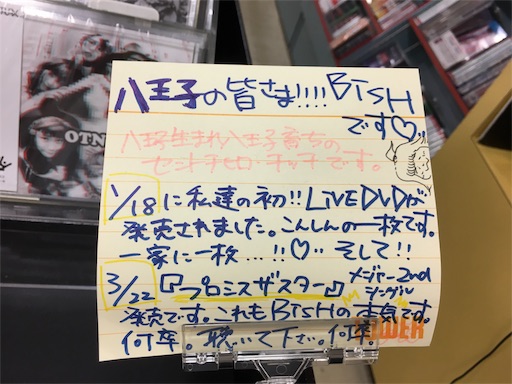 八王子の皆さま!!!! BiSH
です♡
八王子生まれ八王子育ちの
セントチヒロ・チッチです。
1/18に私達の初!! LiVE DVDが
発売されました。こんしんの一枚です。
一家に一枚…!!♡ そして!!
3/22『プロミスザスター』メジャー2nd
シングル
発売です。これもBiSHの本気です。
何卒。聴いて下さい。何卒。
OTN